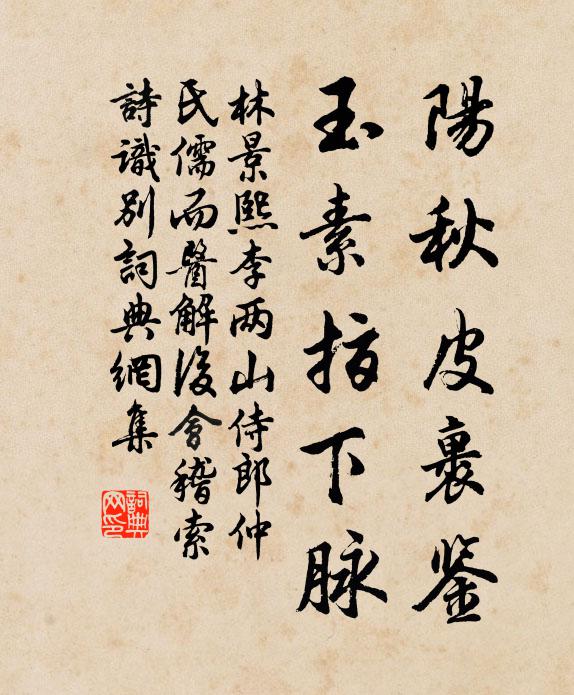 陽秋皮裹鉴
玉素指下脉
林景熙李两山侍郎仲
氏儒而醫解後會稽索
詩識别詞典網集
詞典
网印